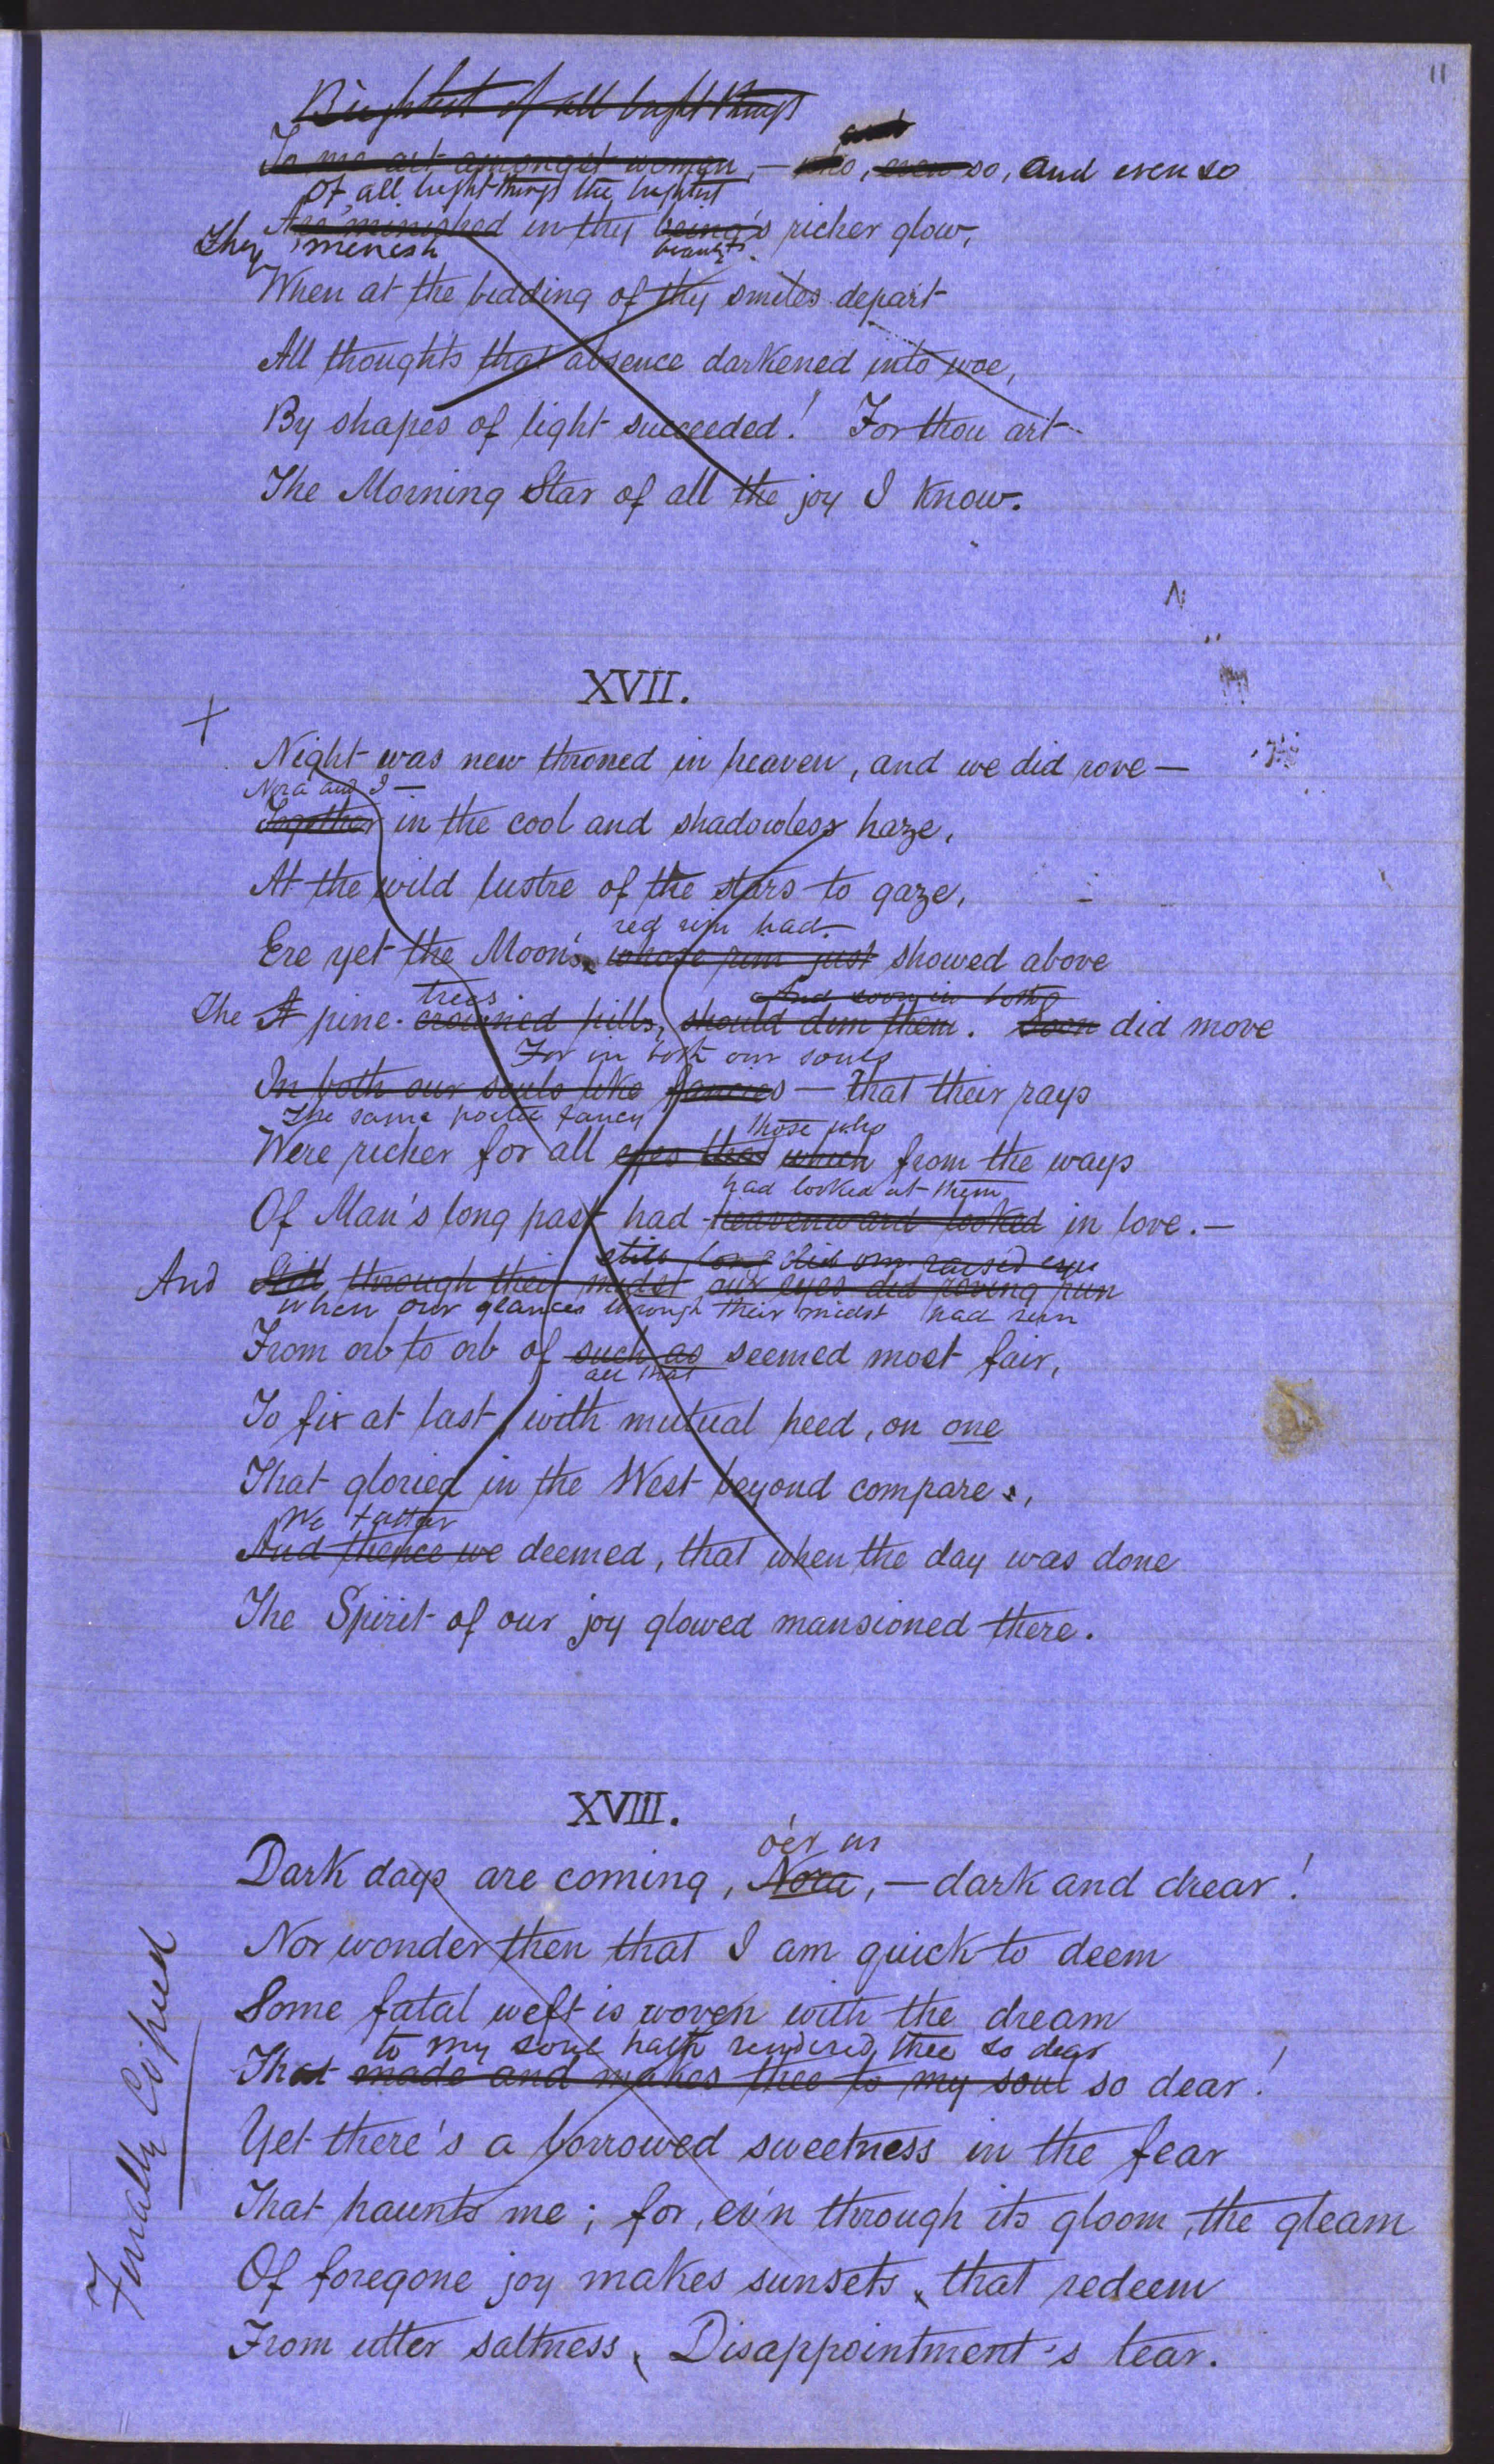 11
Brightest of all bright things
To me art amongst women, — so, even so, and even so
Of all bright things the brightest
They Are minished in thy being's richer glow,
minish beauty's
When at the bidding of thy smiles depart
All thoughts that absence darkened into woe,
By shapes of light succeeded! For thou art
The Morning Star of all the joy I know.
XVII.
+
Night was new throned in heaven, and we did rove —
Nora and I —
Together in the cool and shadowless haze,
At the wild lustre of the stars to gaze,
red rim had
Ere yet the Moon's whose rim just showed above
trees. And soon in both
The A pine-crowned hills, should dim them. Soon did move
For in both our souls
In both our souls like fancies — that their rays
The same poetic fancy those who
Were richer for all eyes that which from the ways
had looked at them
Of Man's long past had heavenward looked in love. —
still long did our raised eyes
And Still through their midst our eyes did roving run
when our glances through their midst had run
From orb to orb of such as seemed most fair,
all that
To fix at last, with mutual heed, on one
That gloried in the West beyond compare,
We
And thence we deemed, that when the day was done
The Spirit of our joy glowed mansioned there.
XVIII.
o'er us
Dark days are coming, Nora, — dark and drear!
Nor wonder then that I am quick to deem
Some fatal weft is woven with the dream
to my soul hath rendered thee so dear
That made and makes thee to my soul so dear!
Yet there's a borrowed sweetness in the fear
That haunts me; for, ev'n through its gloom, the gleam
Of foregone joy makes sunsets, that redeem
From utter saltness, Disappointment's tear.
Finally Copied